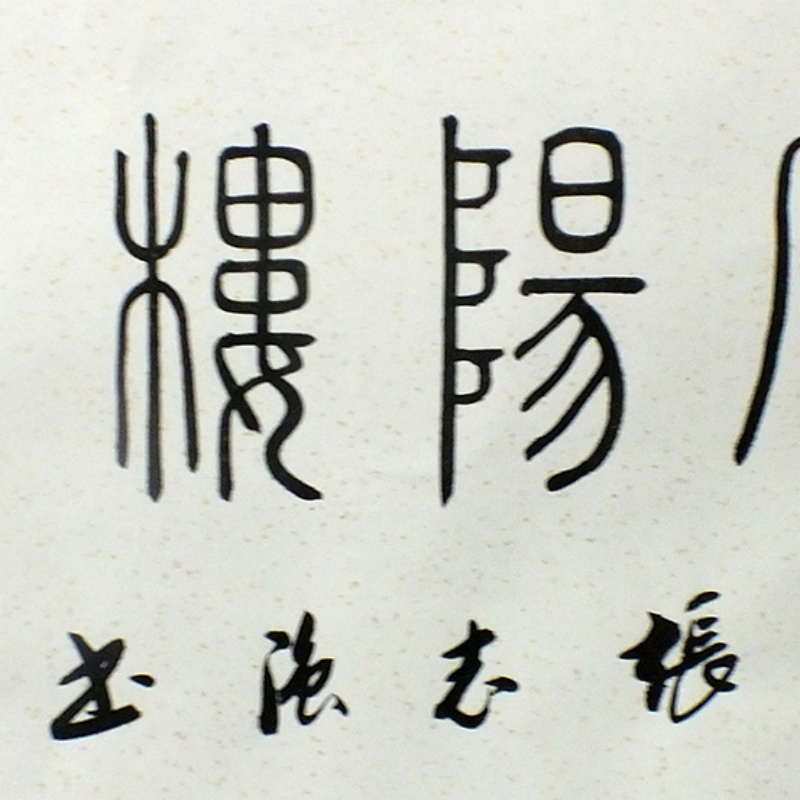 陽樓
張志強書